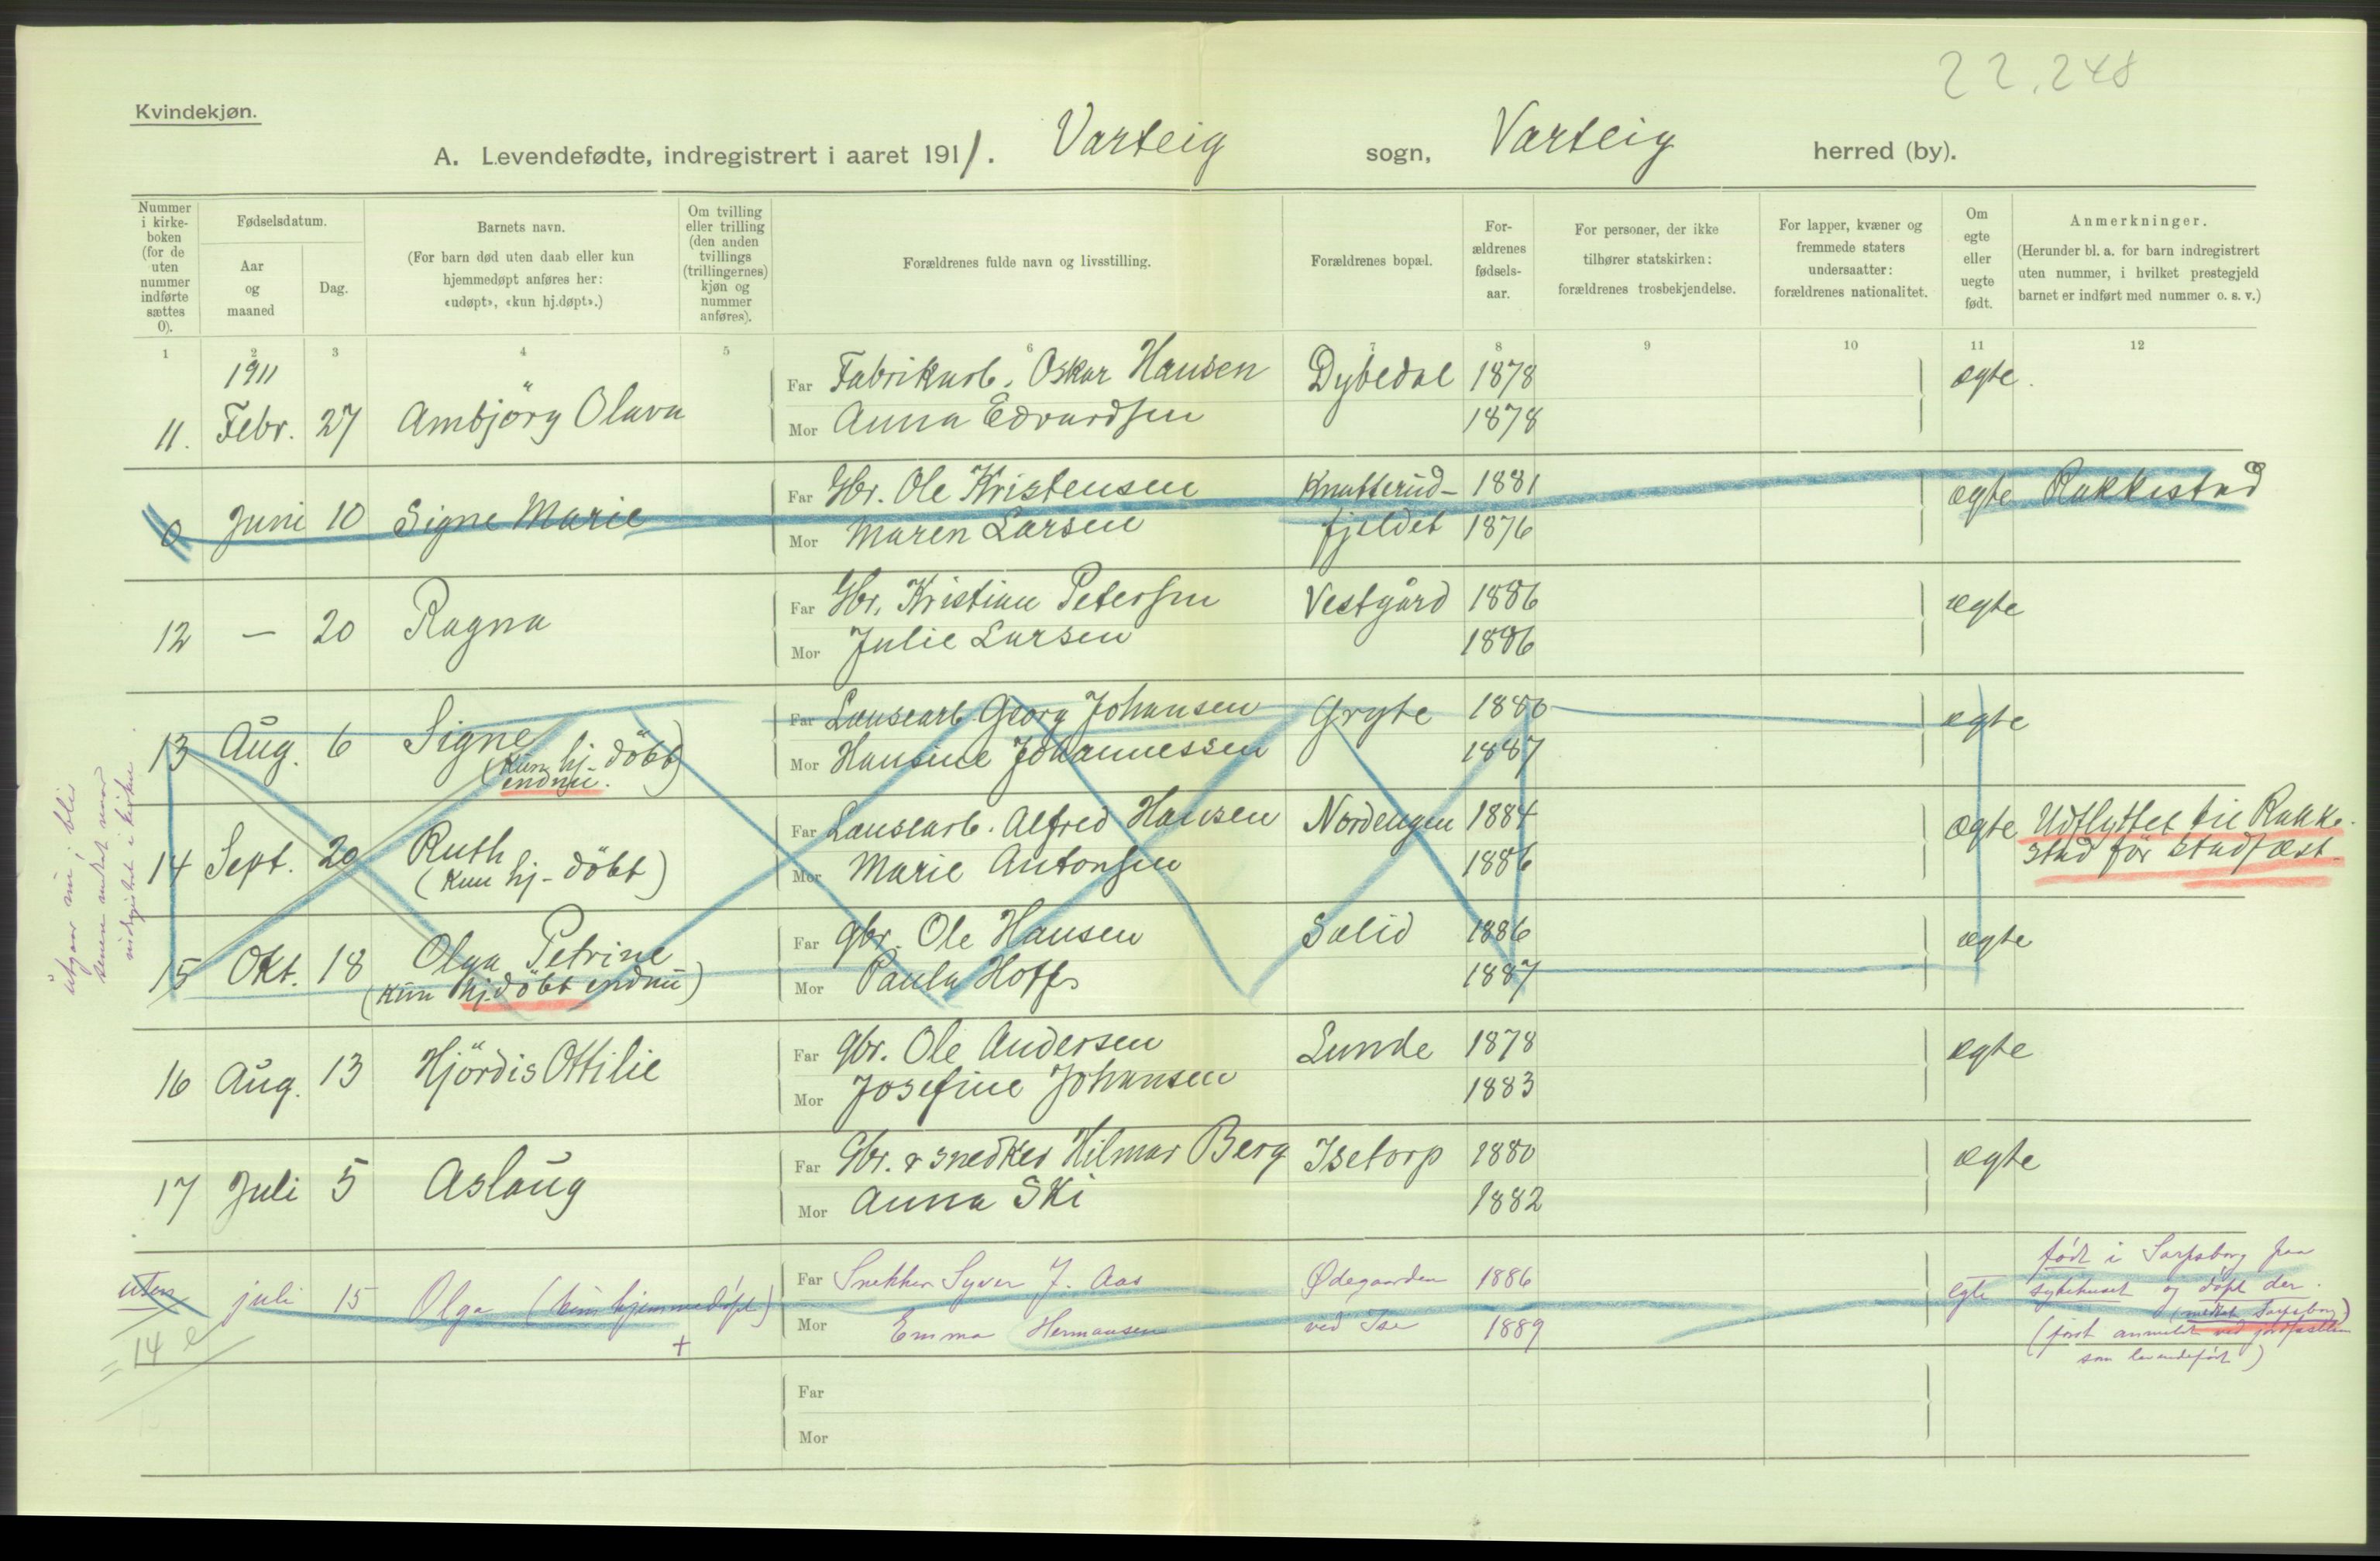 22.248
Kvindekjøn.
A. Levendefødte, indregistrert i aaret 1911. Varteig sogn, Varteig herred (by).
Nummer i kirke-boken (for de uten nummer indførte sættes 0).
Fødselsdatum.
Aar og maaned
Dag.
Barnets navn.
(For barn død uten daab eller kun hjemmedøpt anføres her: «udøpt», «kun hj.døpt».)
Om tvilling eller trilling (den anden tvillings (trillingernes) kjøn og nummer anføres).
Forældrenes fulde navn og livsstilling.
Forældrenes bopæl.
For-ældrenes fødsels-aar.
For personer, der ikke tilhører statskirken: forældrenes trosbekjendelse.
For lapper, kvæner og fremmede staters undersaatter: forældrenes nationalitet.
Om egte eller uegte født.
Anmerkninger.
(Herunder bl. a. for barn indregistrert uten nummer, i hvilket prestegjeld barnet er indført med nummer o. s. v.)
1 2 3 4 5 6 7 8 9 10 11 12
1911
Far Fabrikarb. Oskar Hansen Dybedal 1878 ægte.
11. Febr. 27 Ambjörg Olava
Mor Anna Edvardsen 1878
Far Gbr. Ole Kristensen Knatterud- 1881 ægte Rakkestad
0 Juni 10 Signe Marie
Mor Maren Larsen fjeldet 1876
Far Gbr. Kristian Petersen Vestgård 1886 ægte
12 — 20 Ragna
Mor Julie Larsen 1886
Far Lænsearb. Georg Johansen Gryte 1880 ægte
13 Aug. 6 Signe
(Kun hj- döbt
endnu.)
Mor Hansine Johannessen 1887
Far Lænsearb. Alfred Hansen Nordengen 1884 ægte Udflyttet til Rakke-
stad för stadfæst-
14 Sept. 20 Ruth
(Kun hj- döbt)
Mor Marie Antonsen 1886
Far gbr. Ole Hansen Solid 1886 ægte
15 Okt. 18 Olga Petrine
(Kun hj.döbt endnu)
Mor Paula Hoff 1887
utgaar nu, bli
senere
indregistret i kirken
Far gbr. Ole Andersen Lunde 1878 ægte
16 Aug. 13 Hjördis Ottilie
Mor Josefine Johansen 1883
Far Gbr. & snedker Hilmar Berg Isetorp 1880 ægte
17 Juli 5 Aslaug
Mor Anna Ski 1882
Far Snekker Syver J. Aas Ødegaarden 1886 egte
uten juli 15 Olga (kun hjemmedøpt)
Mor Emma Hermansen ved Ise 1889
+
født i Sarpsborg paa
sykehuset og døpt der.
(meldt Sarpsborg)
(først anmeldt ved jordfæstelsen
som levendefødt)
= 14 e
Far
Mor